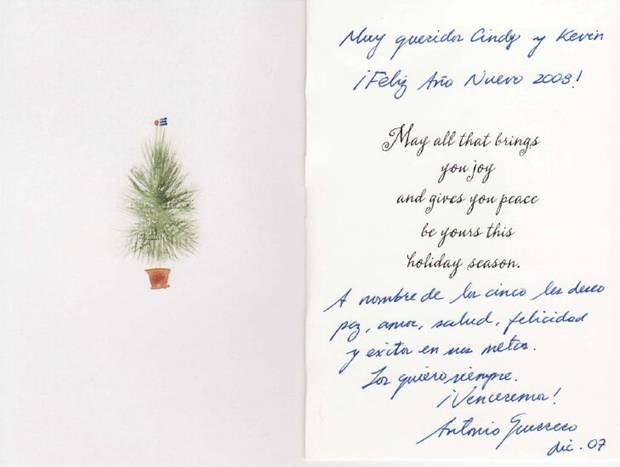 Muy queridos Cindy y Kevin
¡Feliz Año Nuevo 2008!
May all that brings
you joy
and gives you peace
be yours this
holiday season.
A nombre de los cinco les deseo
paz, amor, salud, felicidad
y éxitos en sus metas.
Los quiero siempre.
¡Venceremos!
Antonio Guerrero
dic. 07